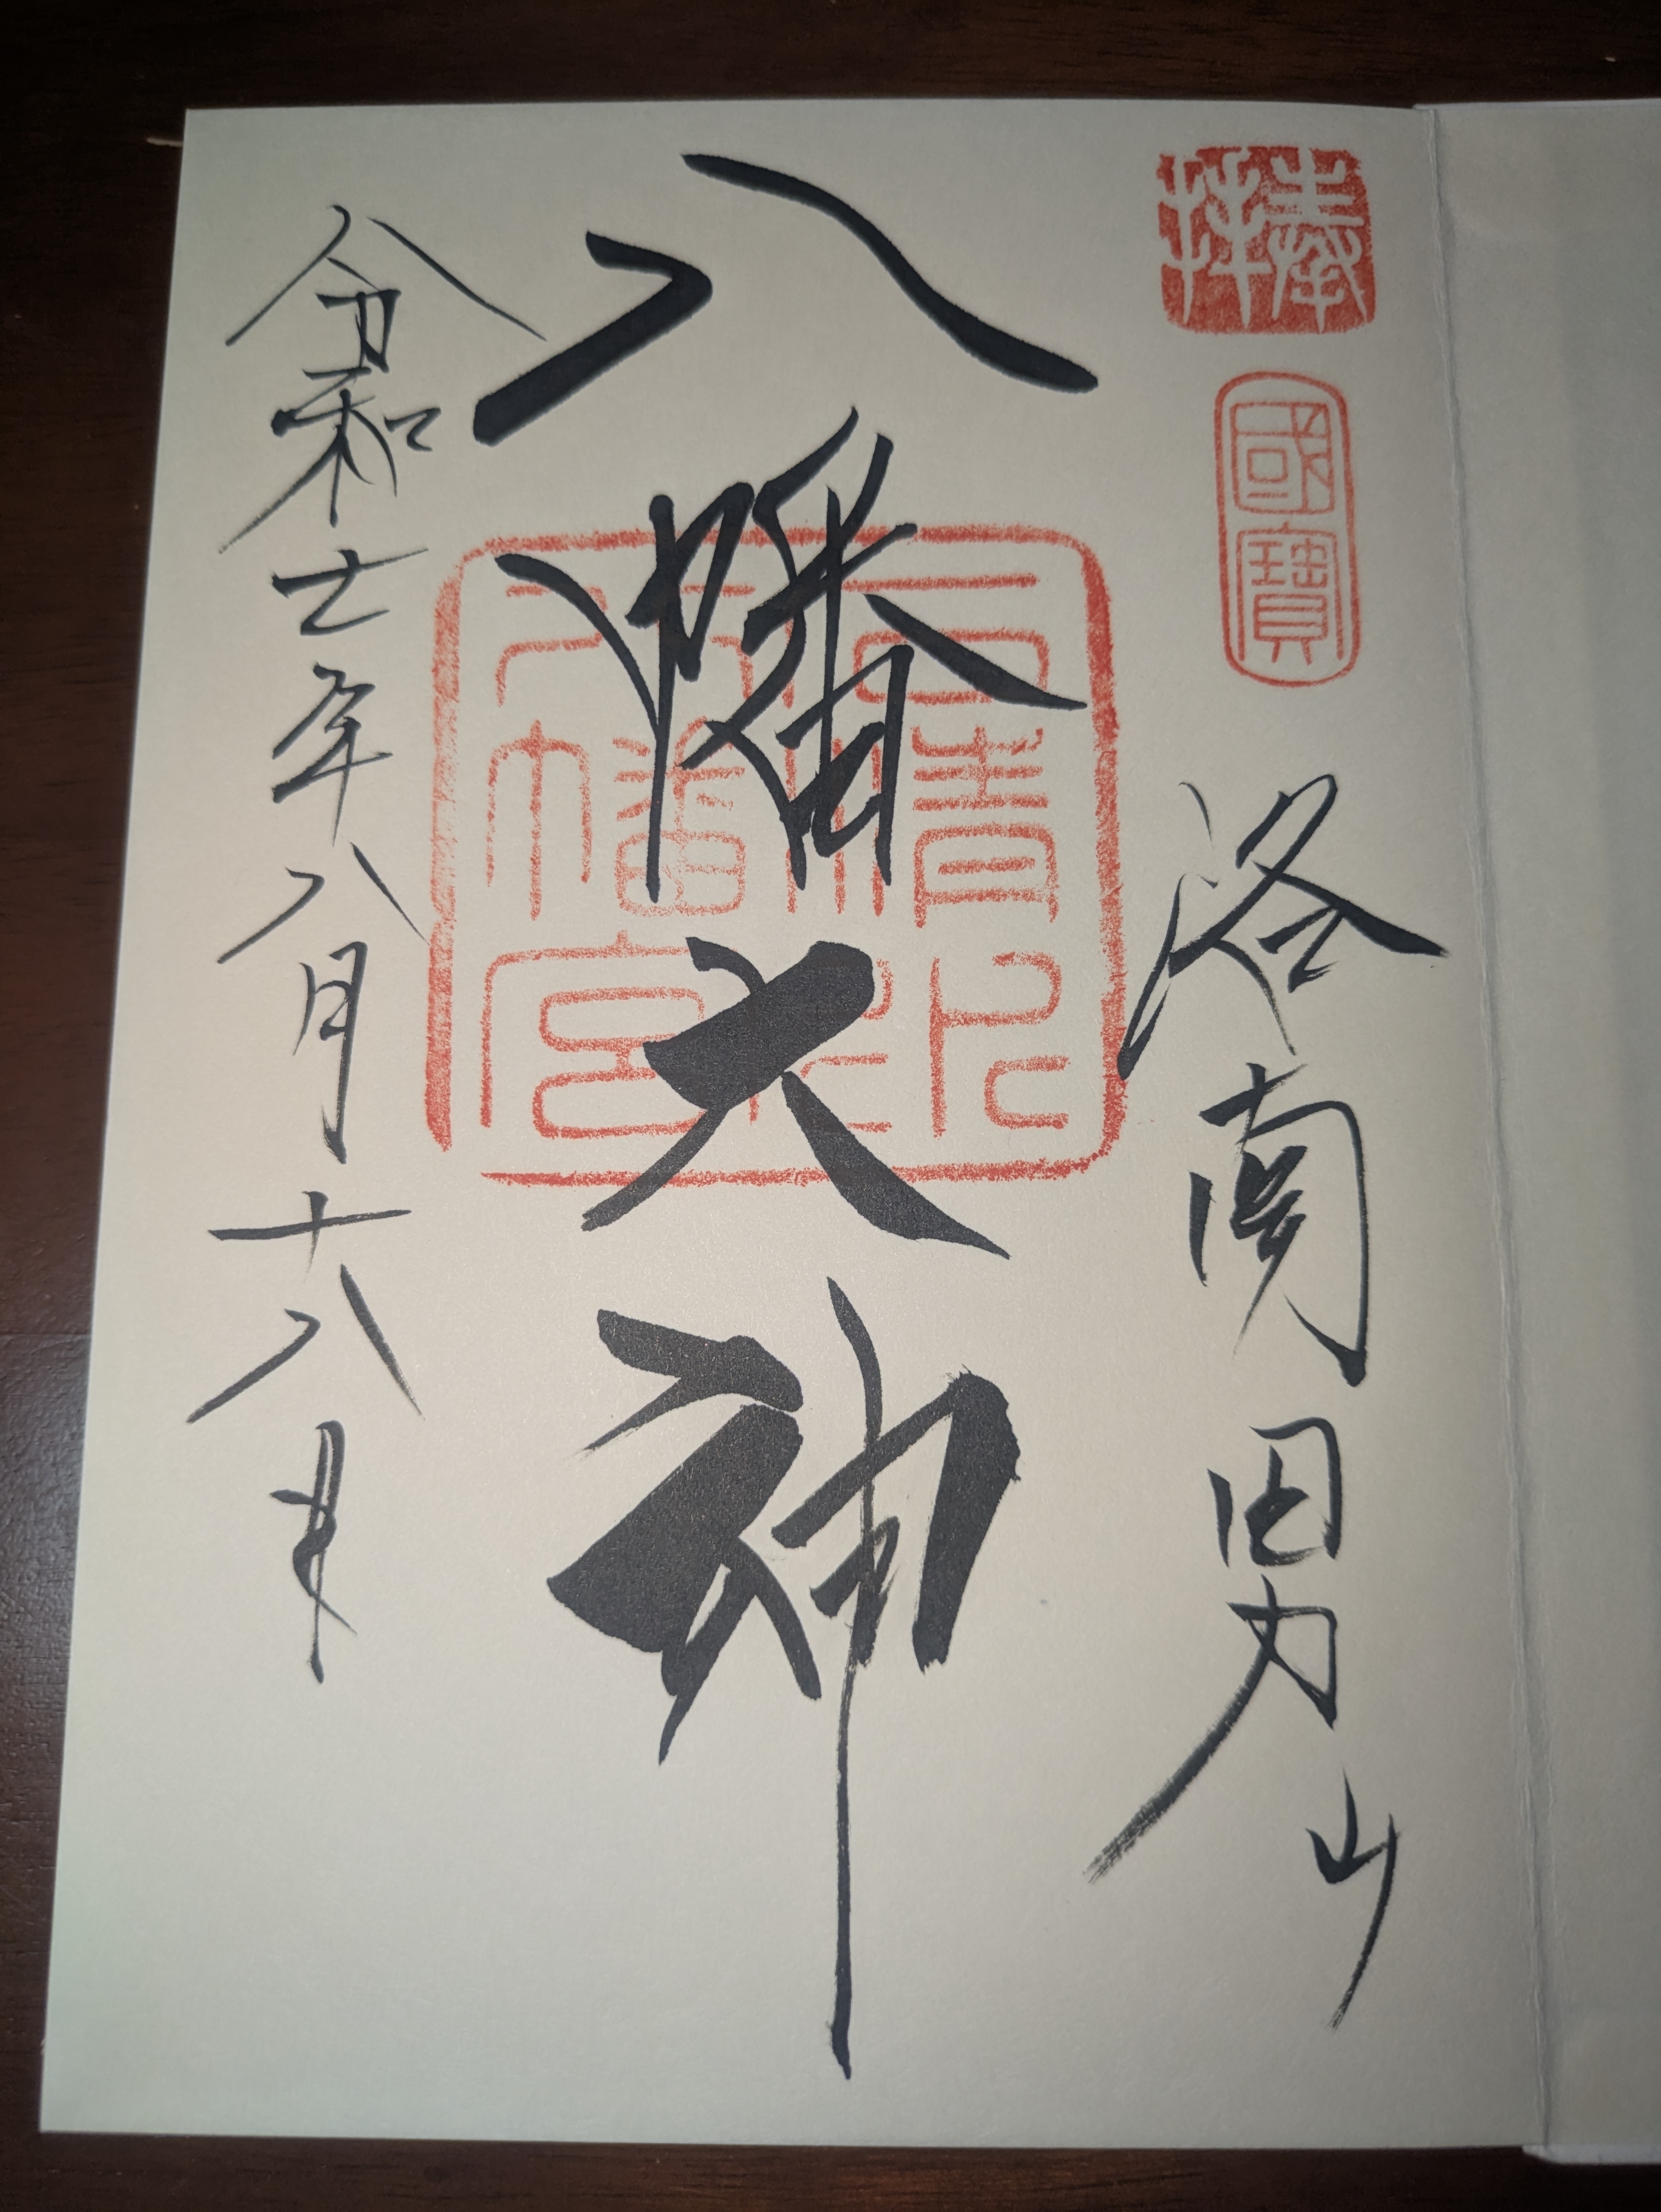 奉拝
國寶
洛南男山
八幡大神
石清水
八幡宮
令和七年八月十八日